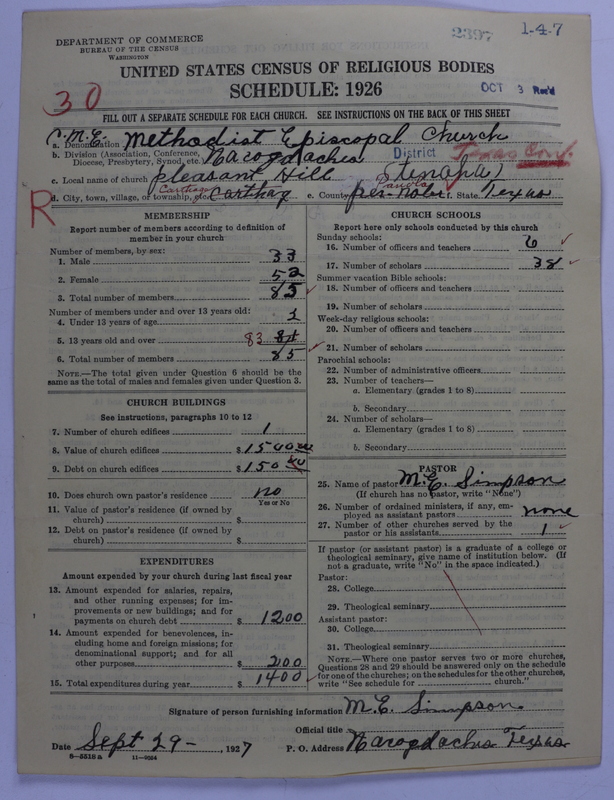 2397 1-4-7
DEPARTMENT OF COMMERCE
BUREAU OF THE CENSUS
WASHINGTON
UNITED STATES CENSUS OF RELIGIOUS BODIES
SCHEDULE: 1926
OCT 3 Rec'd
30
FILL OUT A SEPARATE SCHEDULE FOR EACH CHURCH. SEE INSTRUCTIONS ON THE BACK OF THIS SHEET
C.M.E. Methodist Episcopal Church
a. Denomination
b. Division (Association, Conference, Nacogdoches District Texas Conf.
Diocese, Presbytery, Synod, etc.)
c. Local name of church pleasant Hill (Tenaha)
Carthage Panola
d. City, town, village, or township, etc. Carthag e. County State Texas
R
MEMBERSHIP
Report number of members according to definition of
member in your church
Number of members, by sex:
1. Male 33
2. Female 52
3. Total number of members 85
Number of members under and over 13 years old:
4. Under 13 years of age
5. 13 years old and over 83 84
6. Total number of members 85
NOTE.—The total given under Question 6 should be
the same as the total of males and females given under Question 3.
CHURCH BUILDINGS
See instructions, paragraphs 10 to 12
7. Number of church edifices 1
8. Value of church edifices $ 1500 00
9. Debt on church edifices $ 150 00
10. Does church own pastor's residence no
Yes or No
11. Value of pastor's residence (if owned by
church) $
12. Debt on pastor's residence (if owned by
church) $
EXPENDITURES
Amount expended by your church during last fiscal year
13. Amount expended for salaries, repairs,
and other running expenses; for im-
provements or new buildings; and for
payments on church debt $ 1200
14. Amount expended for benevolences, in-
cluding home and foreign missions; for
denominational support; and for all
other purposes $ 200
15. Total expenditures during year $ 1400
CHURCH SCHOOLS
Report here only schools conducted by this church
Sunday schools:
16. Number of officers and teachers 6
17. Number of scholars 38
Summer vacation Bible schools:
18. Number of officers and teachers
19. Number of scholars
Week-day religious schools:
20. Number of officers and teachers
21. Number of scholars
Parochial schools:
22. Number of administrative officers
23. Number of teachers—
a. Elementary (grades 1 to 8)
b. Secondary
24. Number of scholars—
a. Elementary (grades 1 to 8)
b. Secondary
PASTOR
25. Name of pastor M.E. Simpson
(If church has no pastor, write "None")
26. Number of ordained ministers, if any, em-
ployed as assistant pastors none
27. Number of other churches served by the
pastor or his assistants 1
If pastor (or assistant pastor) is a graduate of a college or
theological seminary, give name of institution below. (If
not a graduate, write "No" in the space indicated.)
Pastor:
28. College
29. Theological seminary
Assistant pastor:
30. College
31. Theological seminary
NOTE.—Where one pastor serves two or more churches,
Questions 28 and 29 should be answered only on the schedule
for one of the churches; on the schedules for the other churches,
write "See schedule for church."
Signature of person furnishing information M.E. Simpson
Official title
Date Sept 29-, 1927 P. O. Address Nacogdoches Texas
8-5518 a 11-9054